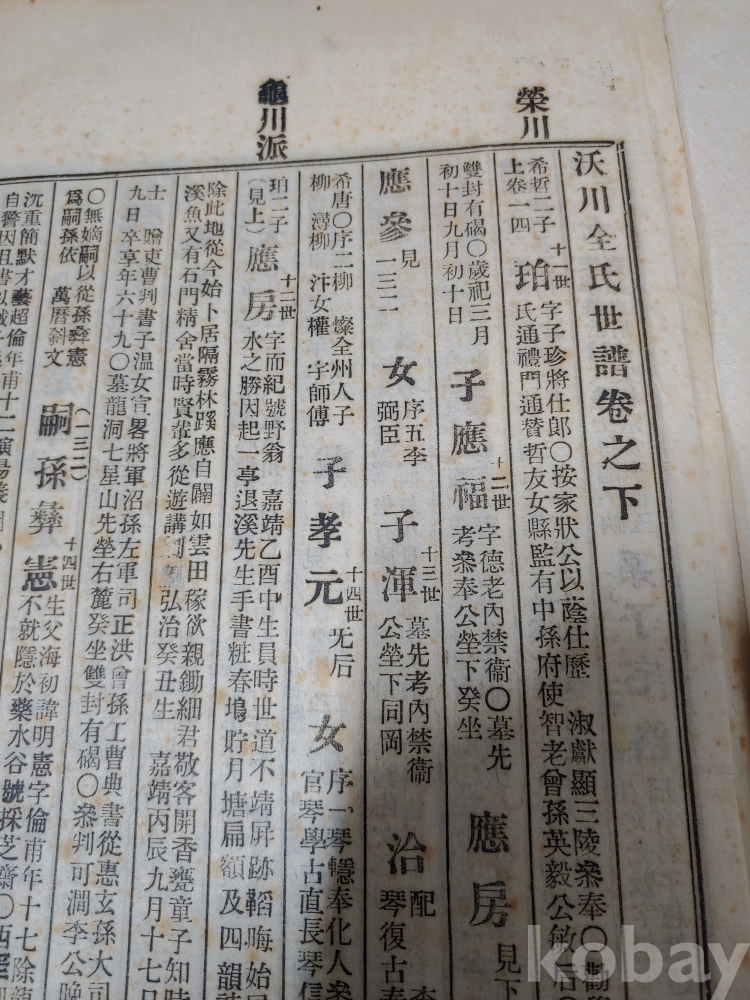 榮川
龜川派
沃川全氏世譜卷之下
希哲二子
上卷一四
十一世
珀
字子珍將仕郎○按家狀公以蔭仕歷
氏通禮門通贊哲友女縣監有中孫府使智老曾孫英毅公敏
淑獻顯三陵叅奉○
雙封有碣○歲祀三月
初十日九月初十日
子應福
十二世
字德老內禁衞○墓先
考叅奉公塋下癸坐
應房
見下
應參
見
一三二
女
序五李
弼臣
子渾
十三世
墓先考內禁衞
公塋下同岡
治
配
琴復古
希唐○序二柳
柳潯柳
燦全州人子
汴女權
字師傅
子孝元
十四世
无后
女
序一琴㯄奉化人叅
官琴學古直長琴
珀二子
(見上)
應房
十二世
字而紀號野翁
嘉靖乙酉中生員時世道不靖屛跡韜晦始
水之勝因起一亭退溪先生手書粧春塢貯月塘扁額及四韻
除此地從今始卜居隔霧林蹊應自闢如雲田稼欲親鋤細君敬客開香甕童子知時
溪魚又有石門精舍當時賢輩多從遊講
弘治癸丑生
嘉靖丙辰九月十七日
士
贈吏曹判書子温女宣畧將軍沼孫左軍司正洪曾孫工曹典書從惠玄孫大司
九日
卒享年六十九○墓龍洞七星山先塋右麓癸坐雙封有碣○叅判可澗李公晚
○無嫡嗣以從孫彛憲
爲嗣孫依
萬曆斜文
(一三二)
嗣孫彛憲
十四世
生父海初諱明憲字倫甫年十七除
不就隱於藥水谷號採芝齋○西
沉重簡默才藝超倫年甫十二